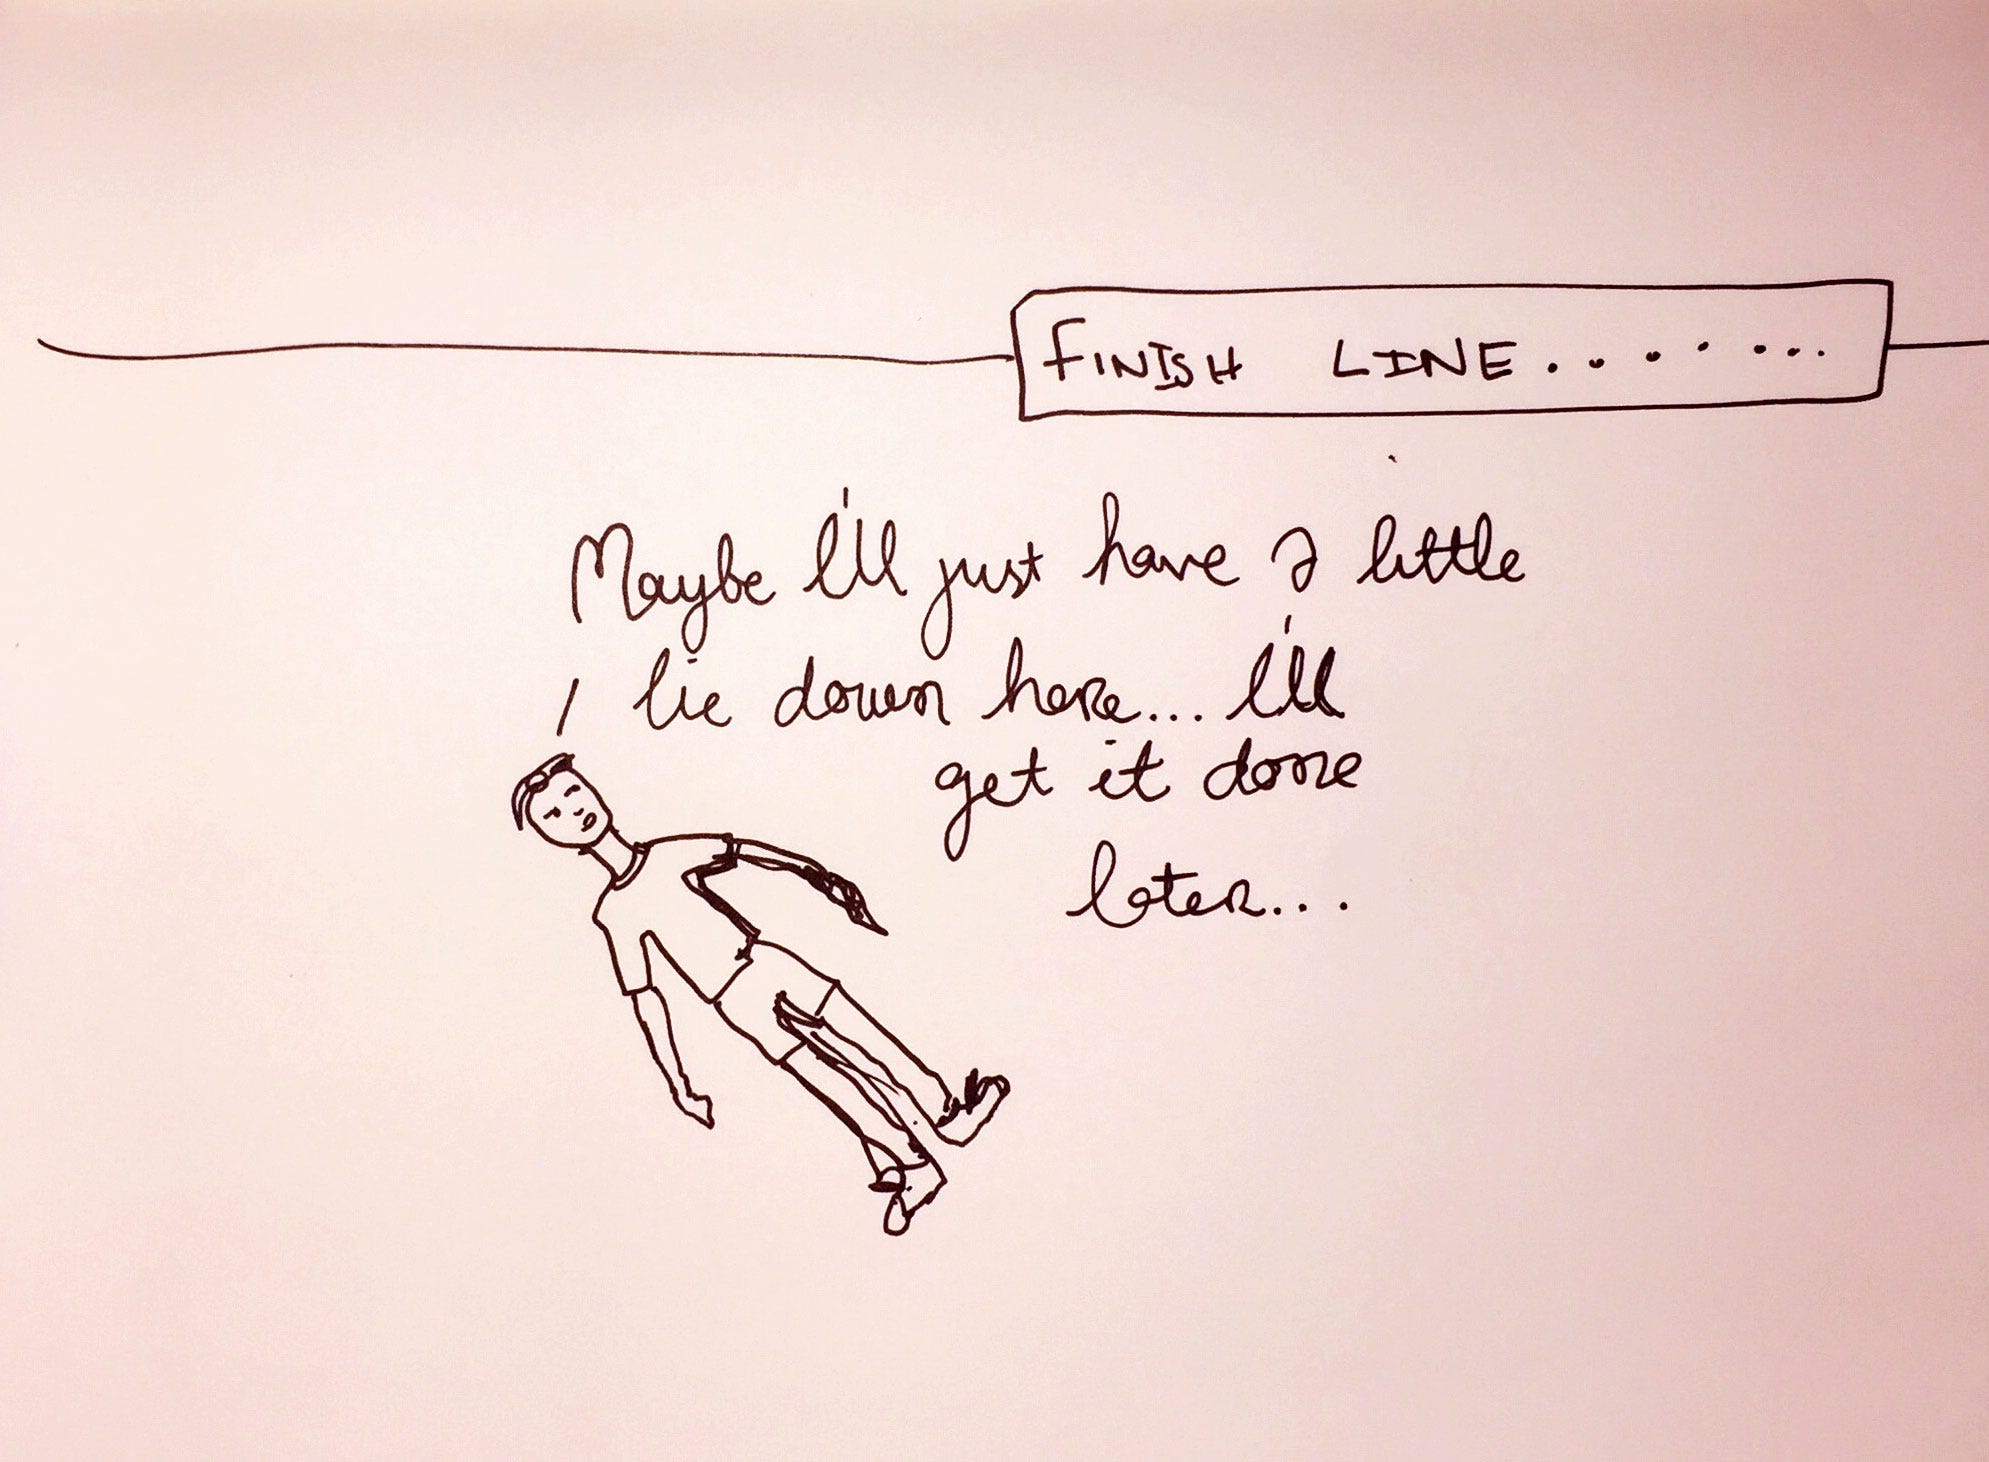 FINISH LINE........
Maybe I'll just have a little
lie down here... I'll
get it done
later...